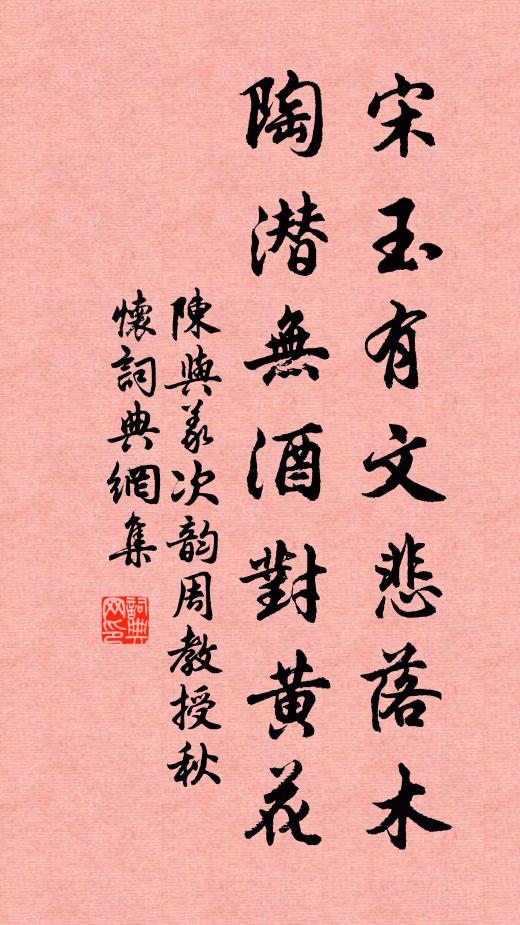 宋玉有文悲落木
陶潜無酒對黄花
陳與義次韵周教授秋
懷詞典網集
詞典
网印